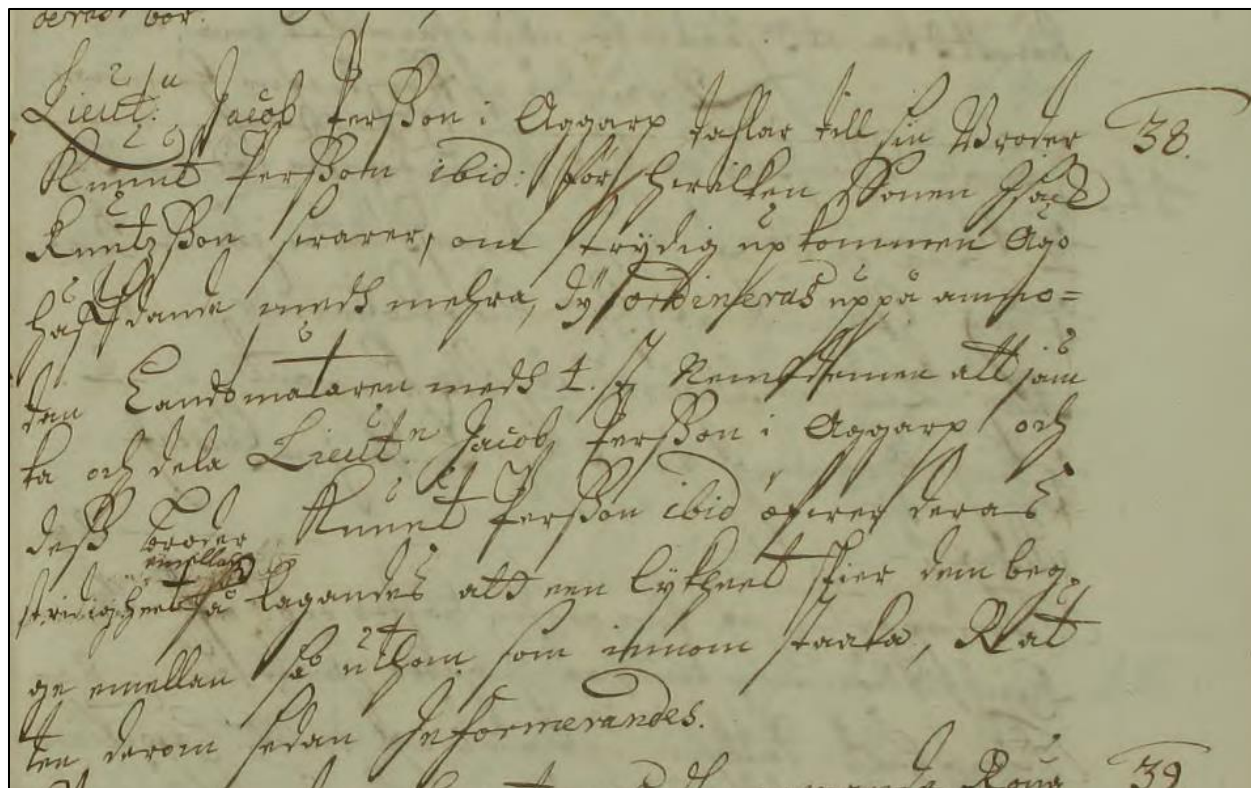 Lieut:n Jacob Perßon i Aggarp tahlar till sin Broder 38.
Knut Perßon ibid: för hwilken Sonen Isac
Knutzßon swarar, om strydig upkommen Ägo
häfdande medh mehra, dÿ ordineras uppå anmo=
dan Landtmätaren medh 4. st Nembdemen att jäm
ka och dela Lieut:n Jacob Perßon i Aggarp och
deß Broder Knut Perßon ibid öfwer deras
emellan
stridigheet så lagandes att een lykheet skier dem beg=
ge emellan så uthom som innom staaka, Rät
ten derom sedan Informerandes.
39